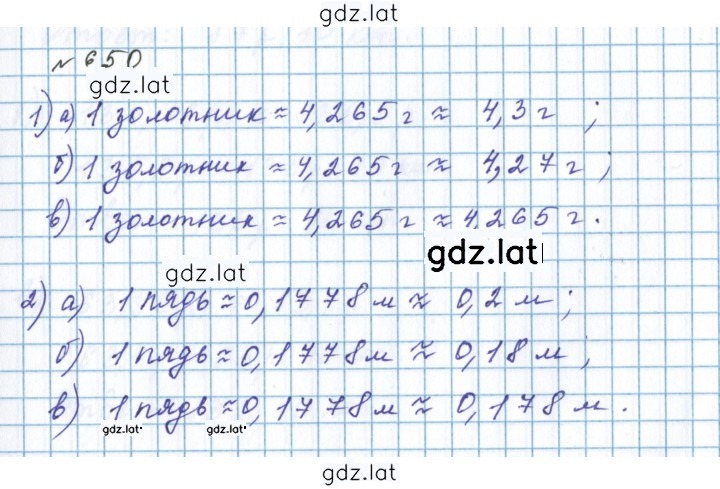 gdz.lat
№ 650
gdz.lat
1) а) 1 золотник ≈ 4,265 г ≈ 4,3 г ;
б) 1 золотник ≈ 4,265 г ≈ 4,27 г ;
в) 1 золотник ≈ 4,265 г ≈ 4,265 г .
gdz.lat
gdz.lat
2) а) 1 пядь ≈ 0,1778 м ≈ 0,2 м ;
б) 1 пядь ≈ 0,1778 м ≈ 0,18 м ;
в) 1 пядь ≈ 0,1778 м ≈ 0,178 м .
gdz.lat gdz.lat
gdz.lat